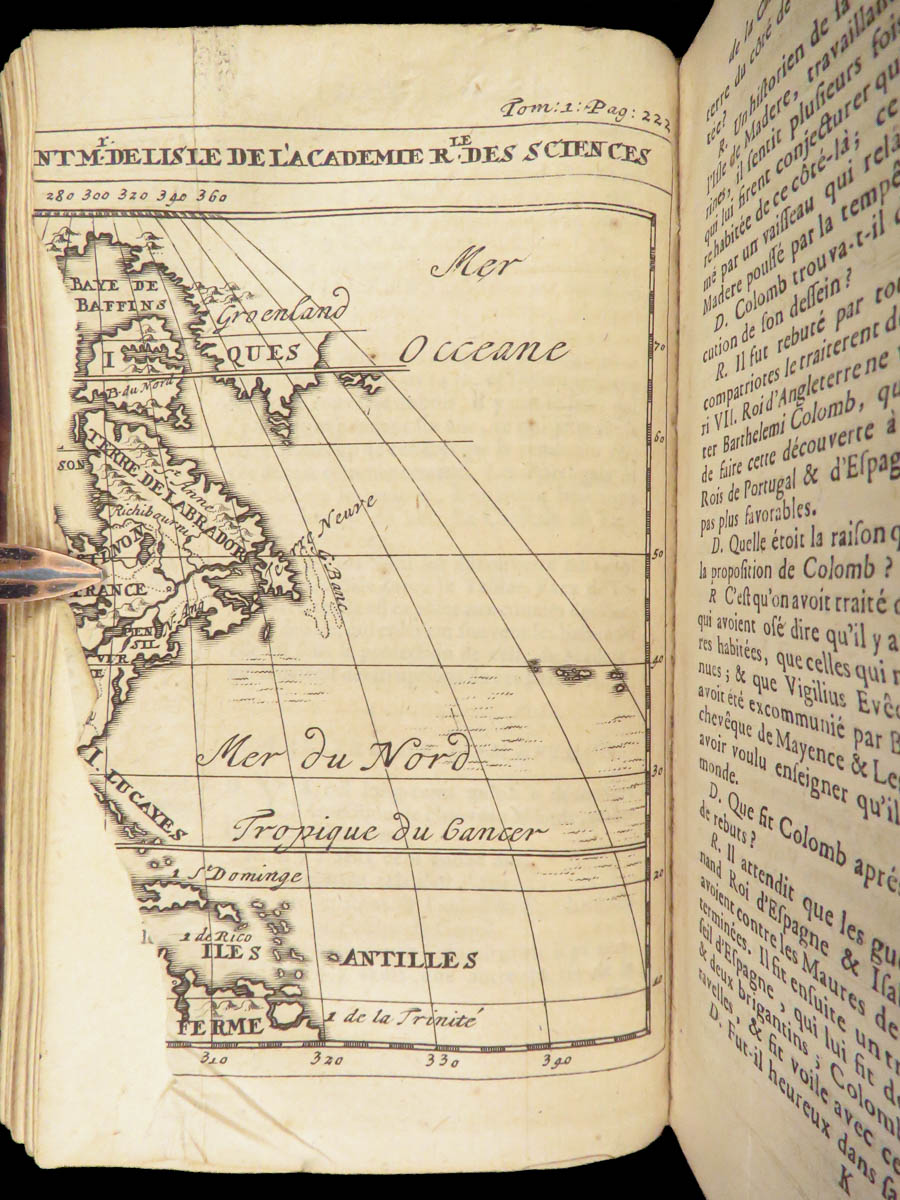 Tom: 1: Pag: 222
NT MR. DE LISLE DE L'ACADEMIE RLE. DES SCIENCES
280 300 320 340 360
Mer
BAYE DE
BAFFINS
Groenland
I
QUES
Occeane
70
B. du Nord
60
SON
TERRE DE LABRADOR
Richibourug
Terre Neuve
G. Banc
50
NON
FRANCE
N. Ang
PEN
SIL
VIR
40
Mer du Nord
30
I LUCAYES
Tropique du Cancer
20
I St Dominge
I de Rico
ILES
ANTILLES
10
FERME
I de la Trinité
310 320 330 340
de la
terre du côté de
tée?
R. Un historien de la
l'Isle de Madere, travaillant
rines, il sentit plusieurs fois
qui lui firent conjecturer qu
re habitée de ce côté-là; ce
mé par un vaisseau qui relâ
Madere poussé par la tempê
D. Colomb trouva-t-il
cution de son dessein?
R. Il fut rebuté par tou
compatriotes le traiterent de
ri VII. Roi d'Angleterre ne
ter Barthelemi Colomb, qu
de faire cette découverte à
Rois de Portugal & d'Espag
pas plus favorables.
D. Quelle étoit la raison q
la proposition de Colomb?
R C'est qu'on avoit traité
qui avoient osé dire qu'il y a
res habitées, que celles qui
nues; & que Vigilius Evêq
avoit été excommunié par B
chevêque de Mayence & Le
avoir voulu enseigner qu'il
monde.
D. Que fit Colomb aprés
de rebuts?
R. Il attendit que les gue
nand Roi d'Espagne & Isa
avoient contre les Maures
terminées. Il fit ensuite un tr
seil d'Espagne, qui lui fit d
& deux brigantins; Colomb
ravelles, & fit voile avec ce
D. Fut-il heureux dans sa
K